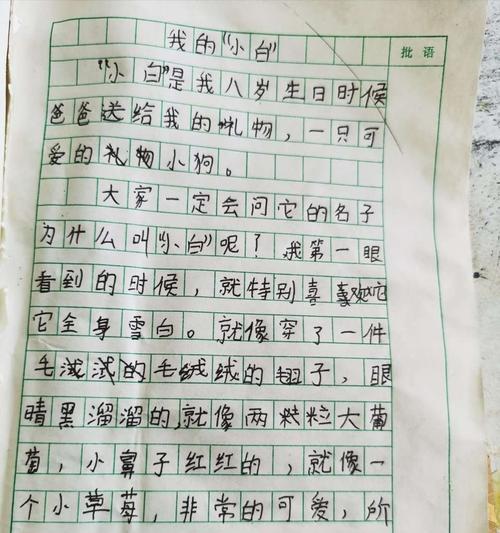 我的“小白”
批语
“小白”是我八岁生日时候
爸爸送给我的礼物，一只可
爱的礼物小狗。
大家一定会问它的名子
为什么叫“小白”呢？我第一眼
看到的时候，就特别喜喜欢它
它全身雪白。就像穿了一件
毛的毛绒绒的子，眼
晴黑溜溜的，就像两粒粒大葡
萄，小鼻子红红的，就像一
个小草莓，非常的可爱，所